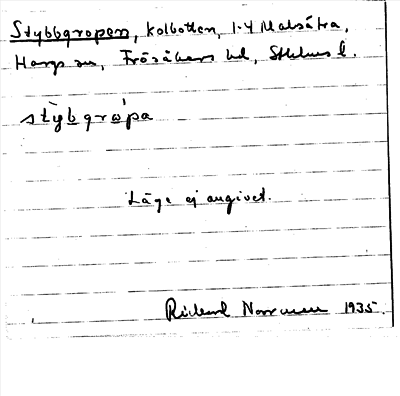 Stybbgropen, kolbotten, 1-4 Malsätra,
Hargs sn, Frösåkers hd, Sthlms l.
stỳbgrὼpa
Läge ej angivet.
Rickard Norrman 1935.